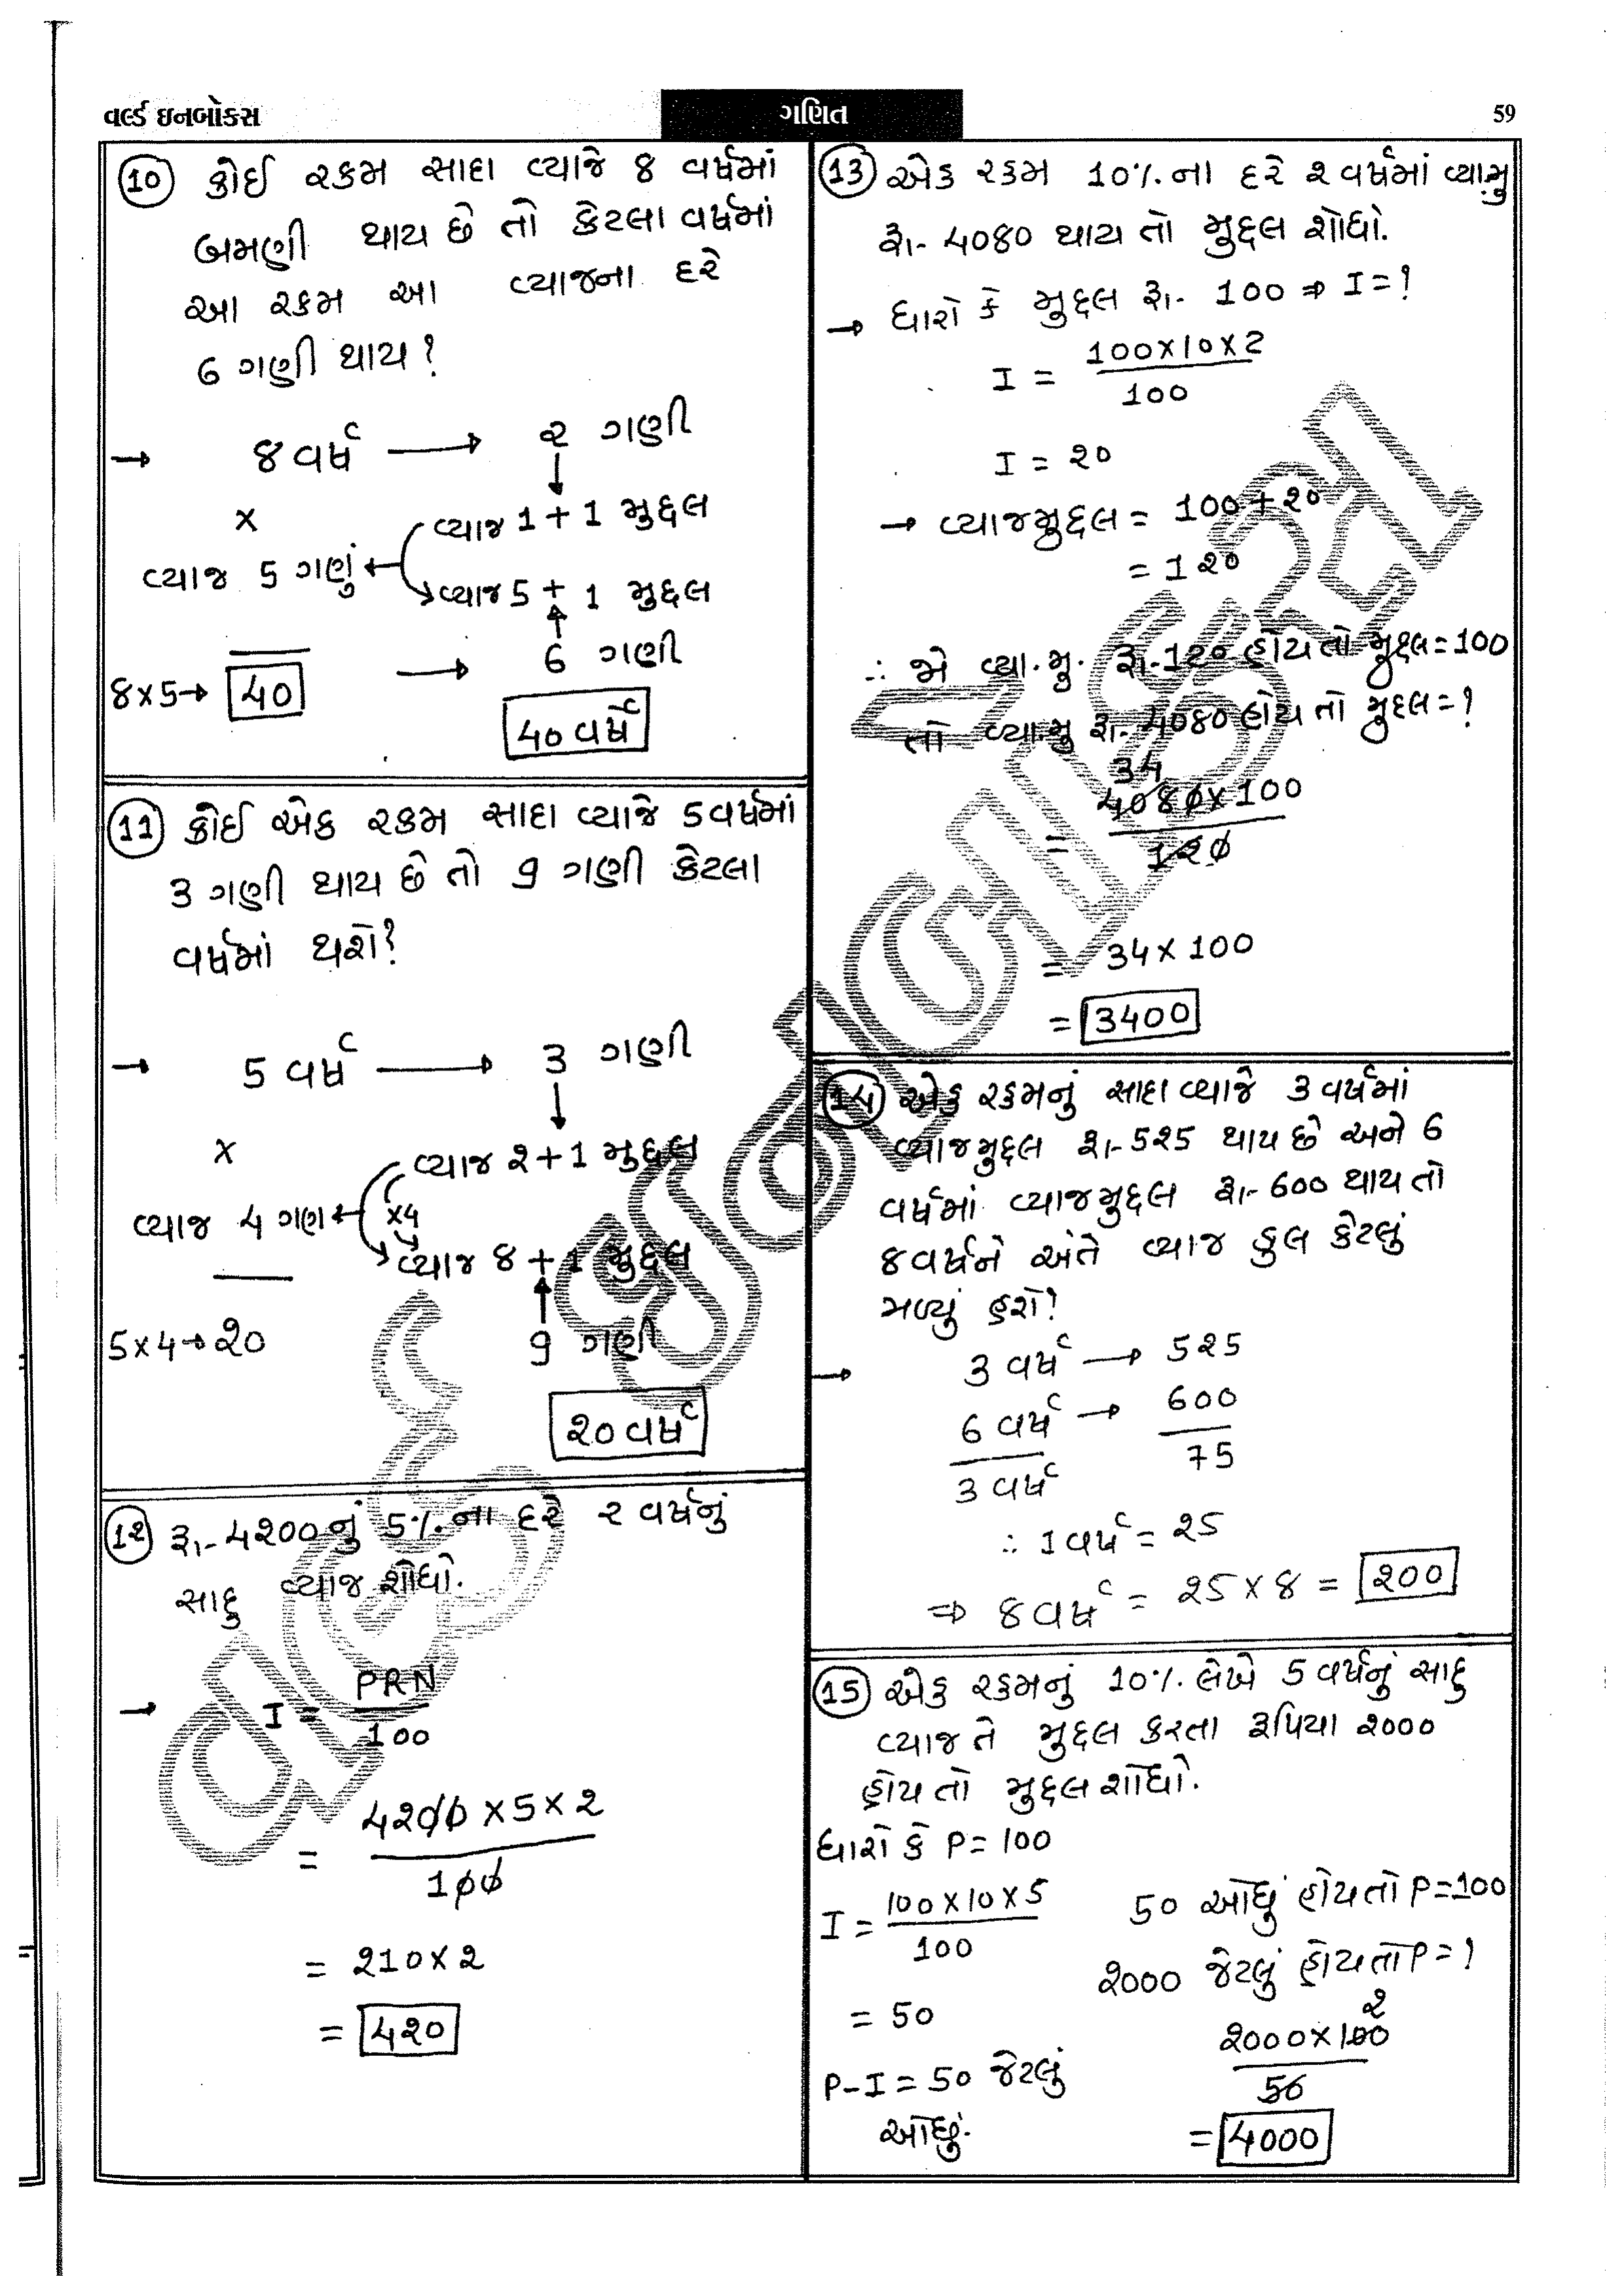 વર્લ્ડ ઇનબોક્સ
ગણિત
59
(10) કોઈ રકમ સાદા વ્યાજે 8 વર્ષમાં
બમણી થાય છે તો કેટલા વર્ષમાં
આ રકમ આ વ્યાજના દરે
6 ગણી થાય?
→ 8 વર્ષ → 2 ગણી
↓
× વ્યાજ 1 + 1 મુદ્દલ
વ્યાજ 5 ગણું ←
વ્યાજ 5 + 1 મુદ્દલ
↑
→ 6 ગણી
8×5→ 40
40 વર્ષ
(11) કોઈ એક રકમ સાદા વ્યાજે 5 વર્ષમાં
3 ગણી થાય છે તો 9 ગણી કેટલા
વર્ષમાં થશે?
→ 5 વર્ષ → 3 ગણી
↓
× વ્યાજ 2+1 મુદ્દલ
વ્યાજ 4 ગણ ← ×4
વ્યાજ 8+1 મુદ્દલ
↑
5×4→20 9 ગણી
20 વર્ષ
(12) રૂા- 4200નું 5%.ના દરે ૨ વર્ષનું
સાદુ વ્યાજ શોધો.
→ I = PRN
100
= 4200 × 5 × 2
100
= 210×2
= 420
(13) એક રકમ 10%.ના દરે 2 વર્ષમાં વ્યા.મુ
રૂા- 4080 થાય તો મુદ્દલ શોધો.
→ ધારો કે મુદ્દલ રૂા- 100 ⇒ I=?
I = 100×10×2
100
I = 20
→ વ્યાજમુદ્દલ = 100+20
= 120
∴ જો વ્યા.મુ. રૂા-120 હોય તો મુદ્દલ=100
તો વ્યા.મુ રૂા- 4080 હોય તો મુદ્દલ=?
34
= 4080×100
120
= 34×100
= 3400
(14) એક રકમનું સાદા વ્યાજે 3 વર્ષમાં
વ્યાજમુદ્દલ રૂા-525 થાય છે અને 6
વર્ષમાં વ્યાજમુદ્દલ રૂા-600 થાય તો
8 વર્ષને અંતે વ્યાજ કુલ કેટલું
મળ્યું હશે?
→ 3 વર્ષ → 525
6 વર્ષ → 600
3 વર્ષ 75
∴ 1 વર્ષ = 25
⇒ 8 વર્ષ = 25 × 8 = 200
(15) એક રકમનું 10%. લેખે 5 વર્ષનું સાદુ
વ્યાજ તે મુદ્દલ કરતા રૂપિયા 2000
હોય તો મુદ્દલ શોધો.
ધારો કે P=100
I = 100×10×5
100
= 50
P-I = 50 જેટલું
ઓછું.
50 ઓછું હોય તો P=100
2000 જેટલું હોય તો P=?
2
2000×100
50
= 4000
વર્લ્ડ ઇનબોક્સ